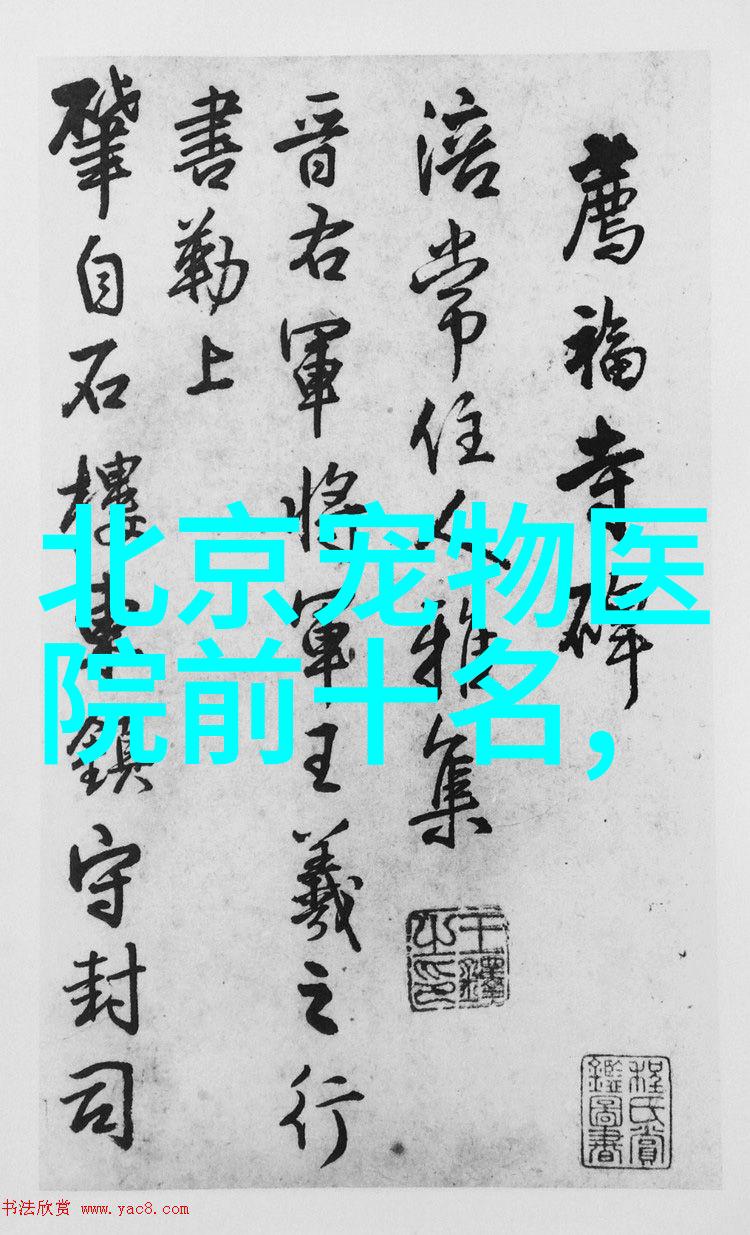 薦福寺碑
涪常住人雅集
晉右軍將軍王羲之行
書勒上
肇自石樓
鎮守封司
北京宠物医
院前十名,
王鐸之印
程氏賞鑑圖書
书法欣赏 www.yac8.com